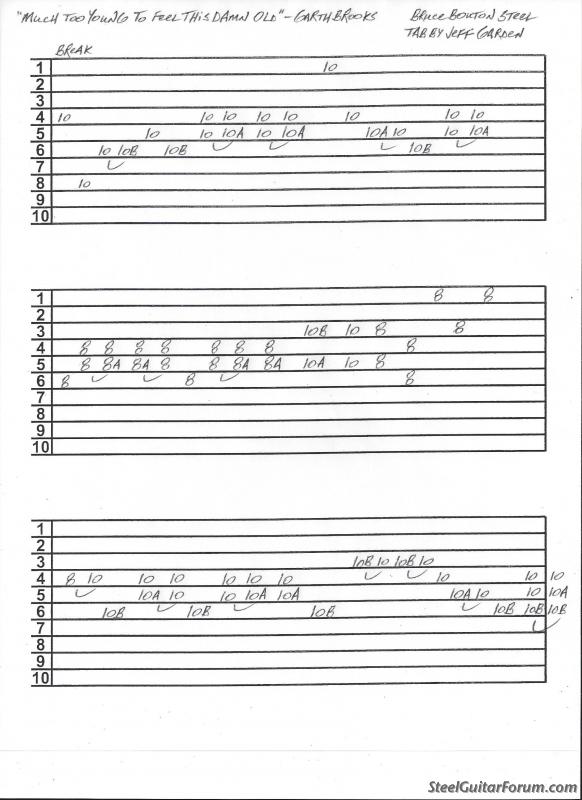 "MUCH TOO YOUNG TO FEEL THIS DAMN OLD" - GARTH BROOKS BRUCE BOUTON STEEL
TAB BY JEFF GARDEN
BREAK
1 10
2
3
4 10 10 10 10 10 10 10 10
5 10 10 10A 10 10A 10A 10 10 10A
6 10 10B 10B 10B
7
8 10
9
10
1 8 8
2
3 10B 10 8 8
4 8 8 8 8 8 8 8 8
5 8 8A 8A 8 8 8A 8 8A 10A 10 8
6 8 8 8
7
8
9
10
1
2
3 10B 10 10B 10
4 8 10 10 10 10 10 10 10 10 10
5 10A 10 10 10A 10A 10A 10 10 10A
6 10B 10B 10B 10B 10B 10B
7
8
9
10
SteelGuitarForum.com